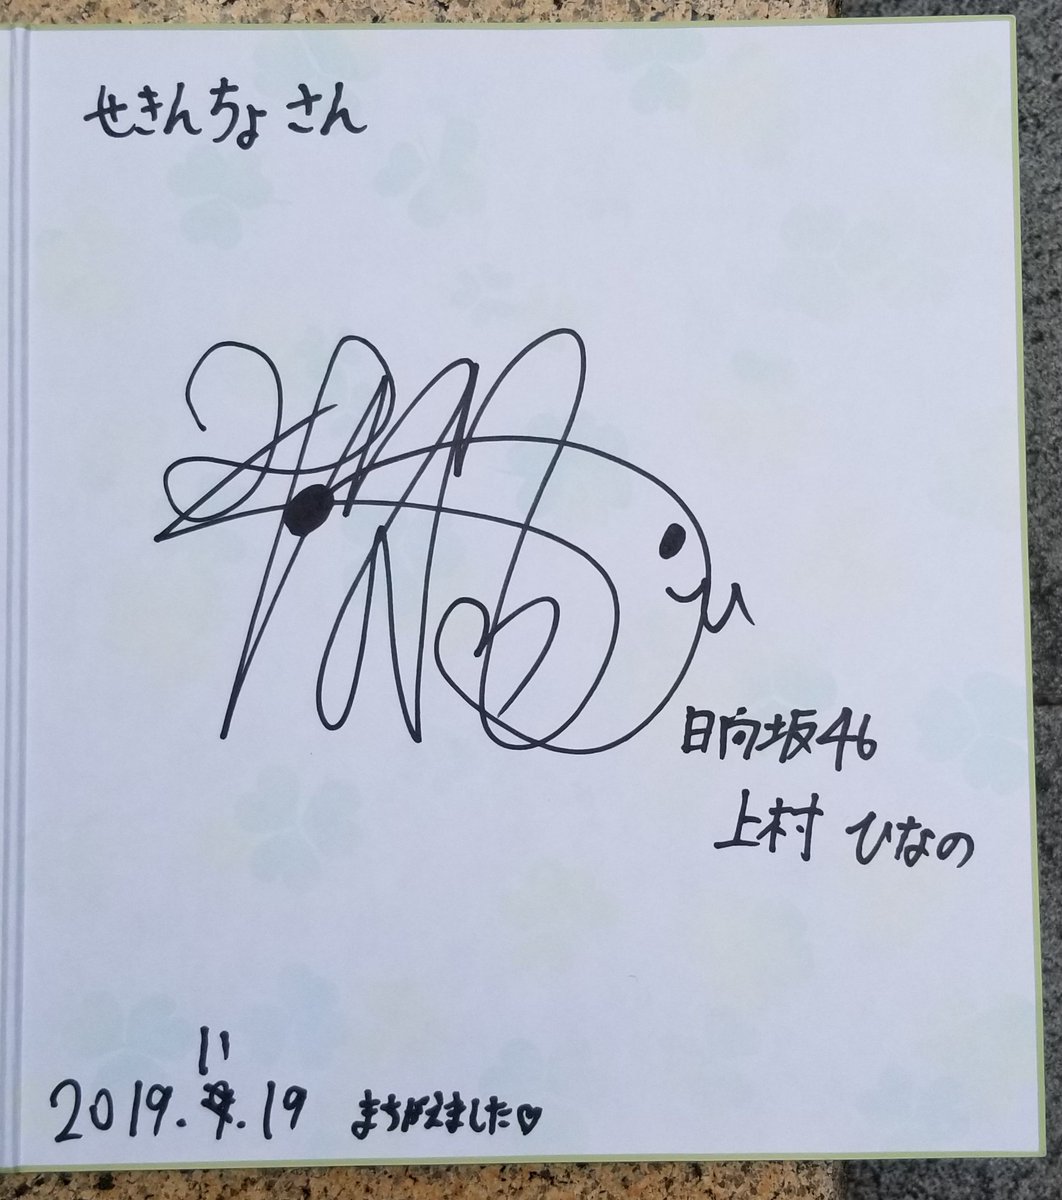 せきんちょ さん
日向坂46
上村 ひなの
11
2019. .19 まちがえました♡